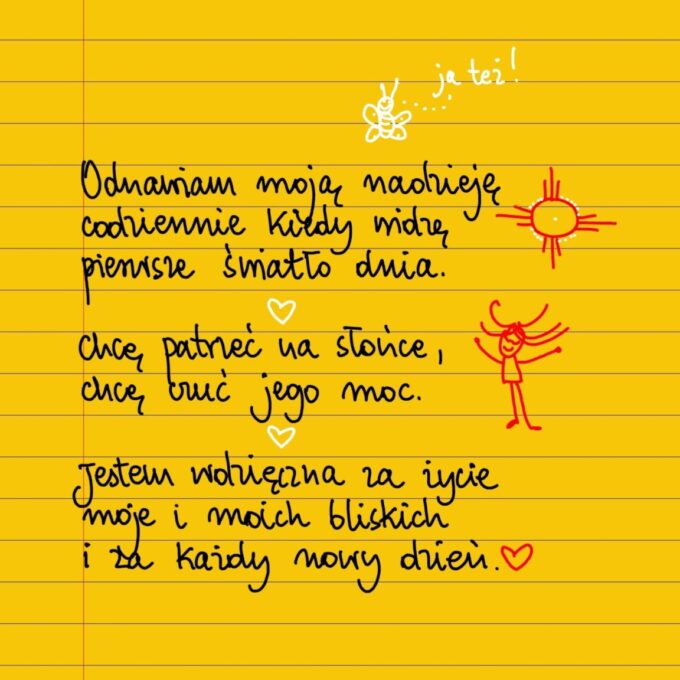 ja też!
Odnawiam moją nadzieję
codziennie kiedy widzę
pierwsze światło dnia.
chcę patrzeć na słońce,
chcę czuć jego moc.
Jestem wdzięczna za życie
moje i moich bliskich
i za każdy nowy dzień.